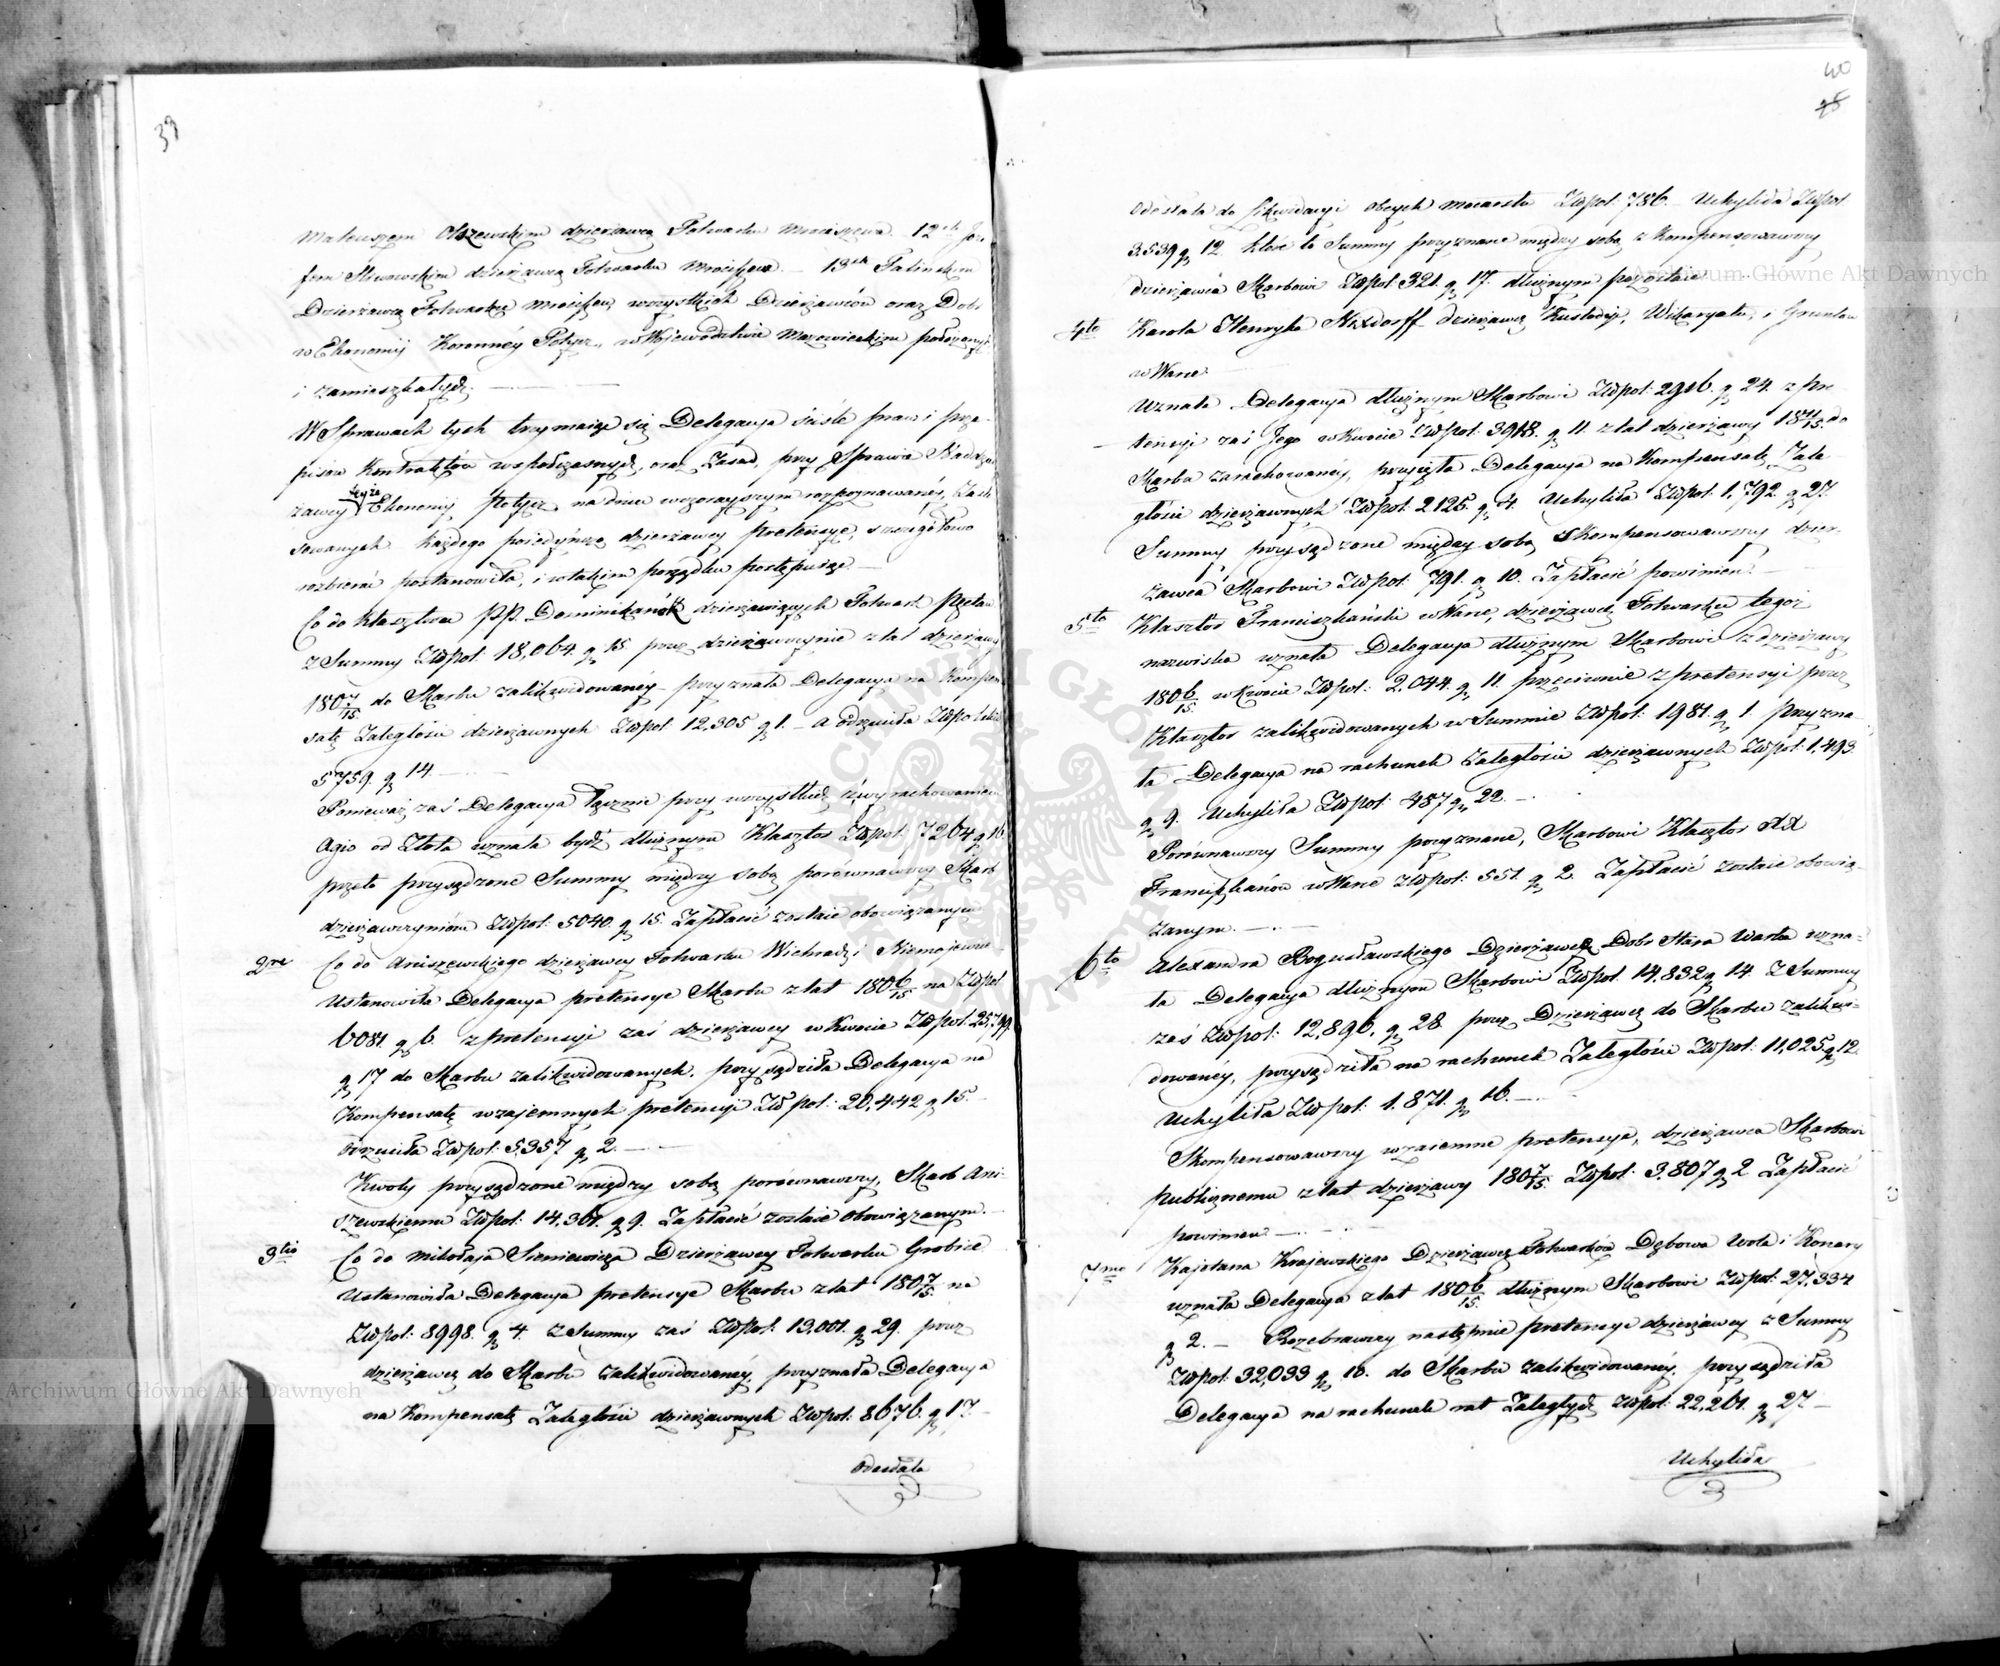 39
Mateuszem Olszewskim dzierżawcą Folwarku Mroczszewa. 12ch Jó-
fem dzierżawcą Folwarku Mrocszewa. – 13ch Talinskim
Dzierżawcą Folwarku wszystkich Dzierżawców oraz Dóbr
w Ekonomij Koronnéy Potycz, w Wojewodztwie Mazowieckim położonych
i zamieszkałych. –
W Sprawach tych trzymaiąc się Delegacya ściśle praw i prze-
pisów Kontraktów wspołczesnych, oraz Zasad, przy Sprawie Naddzier
żawcy teyże Ekonomij Potycz na dniu wczorayszym rozpoznawanéy, Zasto
sowanych każdego poiedyńczo dzierżawcy pretensye, szczegółowo
rozbierać postanowiła, i w takim porządku postępuiąc. –
Co do Klasztoru PP. Dominikanek dzierżawiących Folwark
z Summy Złłpol: 18,064. g 15. przez dzierżawczynie z lat dzierżawy
180 7/15. do Skarbu zalikwidowaney – przyznała Delegacya na Kompen
satę Zaległości dzierżawnych Złłpol. 12,305 g 1. – a odrzuciła Złłpolskich
5759. g 14. –
Ponieważ zaś Delegacya łącznie przy wszystkich z wyrachowaniem
Agio od Złota uznała bydź dłużnym Klasztor Złłpol: 7264 g 16
przeto przysądzone Summy między sobą porównawszy Skarb
dzierżawczyniom Złłpol: 5040. g 15. Zapłacić zostaie obowiązanym
2re Co do Aniszewskiego dzierżawcy Folwarku Wichradz i Niemojewice
Ustanowiła Delegacya pretensye Skarbu z lat 180 6/15 na Złłpol
6081. g 6. z pretensyi zaś dzierżawcy w Kwocie Złłpol. 25,799
g 17 do Skarbu zalikwidowanych, przysądziła Delegacya na
Kompensatę wzajemnych pretensyi Złł pol: 20,442 g 15. –
Odrzuciła Złłpol: 5357 g 2. –
Kwoty przysądzone między sobą porównawszy, Skarb Ani-
szewskiemu Złłpol: 14,361. g 9. Zapłacić zostaie obowiązanym. –
3tio Co do Mikołaja Sieniewicza Dzierżawcy Folwarku Grobice
Ustanowiła Delegacya pretensye Skarbu z lat 180 7/15 na
Złłpol: 8998. g 4. z Summy zaś Złłpol: 13,001. g 29. przez
dzierżawcę do Skarbu zalikwidowanéy, przyznała Delegacya
na Kompensatę Zaległości dzierżawnych Złłpol: 8676. g 17. –
Odesłała
40
Odesłała do Likwidacyi obcych mocarstw Złłpol: 786. Uchyliła Złłpol
3.539 g 12. które to Summy przyznane między sobą z Kompensowawszy
dzierżawca Skarbowi Złłpol: 321. g 17. dłużnym pozostaie. –
4to Karola Henryka Nixdorff dzierżawcę Kustodyi, Wikaryatu, i Gruntów
w Warce. –
Uznała Delegacya dłużnym Skarbowi Złłpol: 2916. g 24. z pre-
tensyi zaś Jego w Kwocie Złłpol. 3918. g 11. z lat dzierżawy 18 11/15. do
Skarbu zarachowanéy, przyięła Delegacya na Kompensatę Zale-
głości dzierżawnych Złłpol: 2125. g 4. Uchyliła Złłpol 1,792. g 27.
Summy przysądzone między sobą Skompensowawszy dzier-
żawca Skarbowi Złłpol: 791. g 10. Zapłacić powinien. –
5to Klasztor Franciszkański w Warce, dzierżawcę Folwarku tegoż
nazwiska uznała Delegacya dłużnym Skarbowi z dzierżawy
180 6/15 w Kwocie Złłpol: 2,044. g 11. przeciwnie z pretensyi przez
Klasztor zalikwidowanych w Summie Złłpol: 1981. g 1. przyzna-
ła Delegacya na rachunek Zaległości dzierżawnych Złłpol: 1,493.
g 9. Uchyliła Złłpol: 487 g 22. –
Porównawszy Summy przyznane, Skarbowi Klasztor XX
Franciszkanów w Warce Złłpol: 551. g 2. Zapłacić zostaie obowią-
zanym. –
6to Alexandra Bogusławskiego Dzierżawcę Dóbr Stara Warka uzna-
ła Delegacya dłużnym Skarbowi Złłpol: 14,832 g 14. Z Summy
zaś Złłpol: 12,896. g 28. przez Dzierżawcę do Skarbu zalikwi-
dowaney, przysądziła na rachunek Zaległości Złłpol: 11,025 g 12.
Uchyliła Złłpol: 1.871. g 16. –
Skompensowawszy wzaiemne pretensye, dzierżawca Skarbowi
Publicznemu z lat dzierżawy 180 7/15. Złłpol: 3.807 g 2. Zapłacić
powinien. –
7mo Kajetana Krajewskiego Dzierżawcę Folwarków Dębowa Wola i Konary
uznała Delegacya z lat 180 6/15. dłużnym Skarbowi Złłpol: 27,334
g 2. – Rozebrawszy następnie pretensye dzierżawcy z Summy
Złłpol: 32,033 g 10. do Skarbu zalikwidowanéy, przysądziła
Delegacya na rachunek rat Zaległych Złłpol: 22,261. g 27. –
Uchyliła
Archiwum Główne Akt Dawnych
Archiwum Główne Akt Dawnych